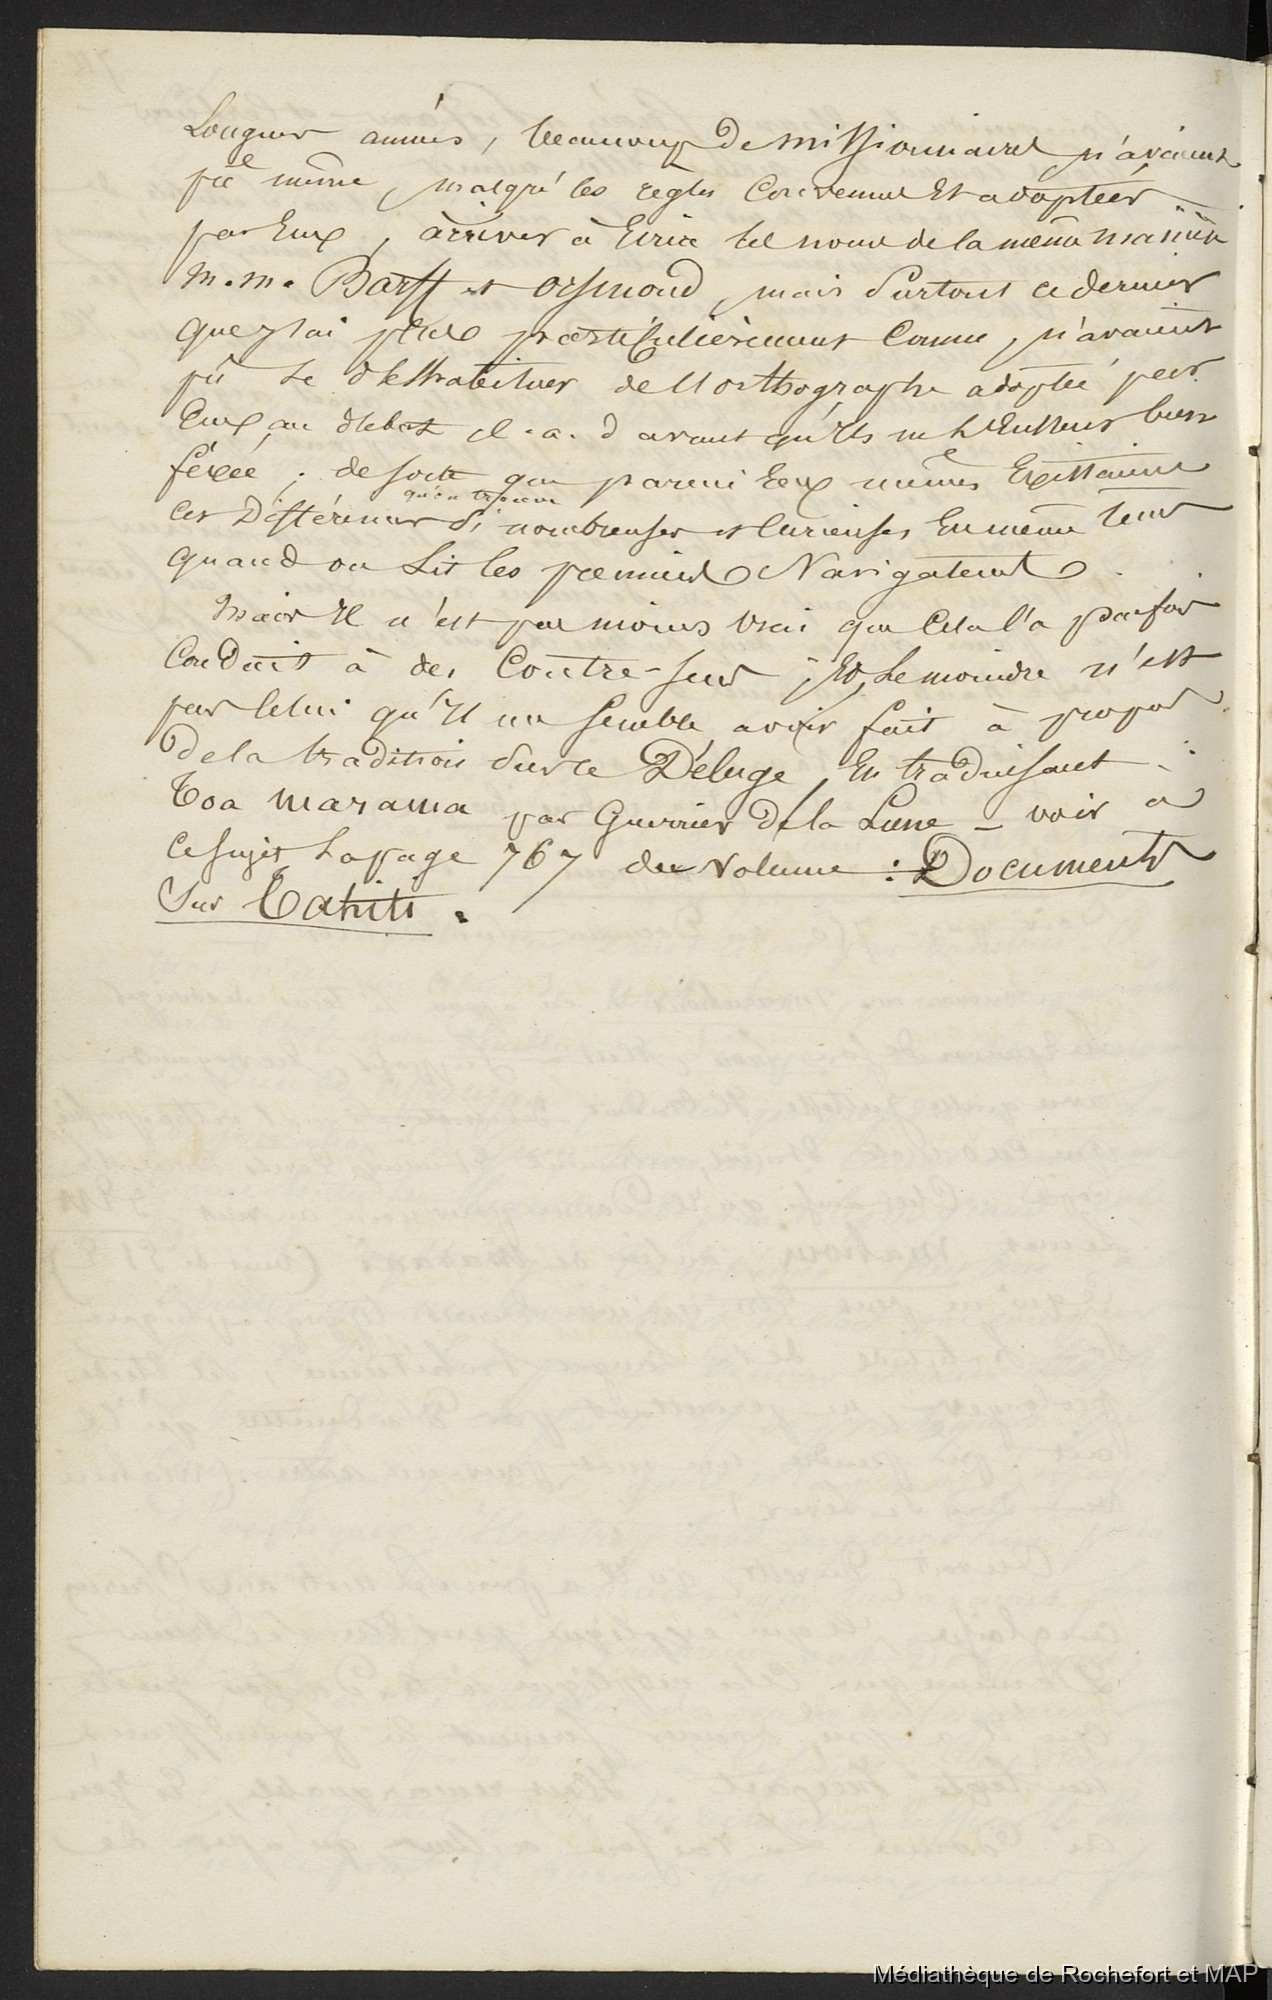 Longues années, beaucoup de missionnaires n'avaient
pû même, malgré les règles convenues et adoptées
par Eux, arriver à Ecrire tel nom de la même manière
M.M. Barff et Orsmond, mais surtout ce dernier
que j'ai plus particulièrement connu, n'avaient
pû se déshabituer de l'orthographe adoptée par
Eux au début, c.a.d avant qu'ils ne l'Eussent bien
fixée; de sorte que parmi Eux mêmes Existaient
qu'on trouve
ces différences si nombreuses et curieuses En même tems
quand on lit les premiers Navigateurs.
Mais Il n'est pas moins vrai que cela l'a parfois
conduit à des contre-sens; Et, le moindre n'est
pas celui qu'Il me semble avoir fait à propos
de la tradition sur le Déluge, En traduisant:
Toa marama par Guerrier de la Lune – voir à
ce sujet la page 767 du volume: Documents
sur Tahiti.
Médiathèque de Rochefort et MAP